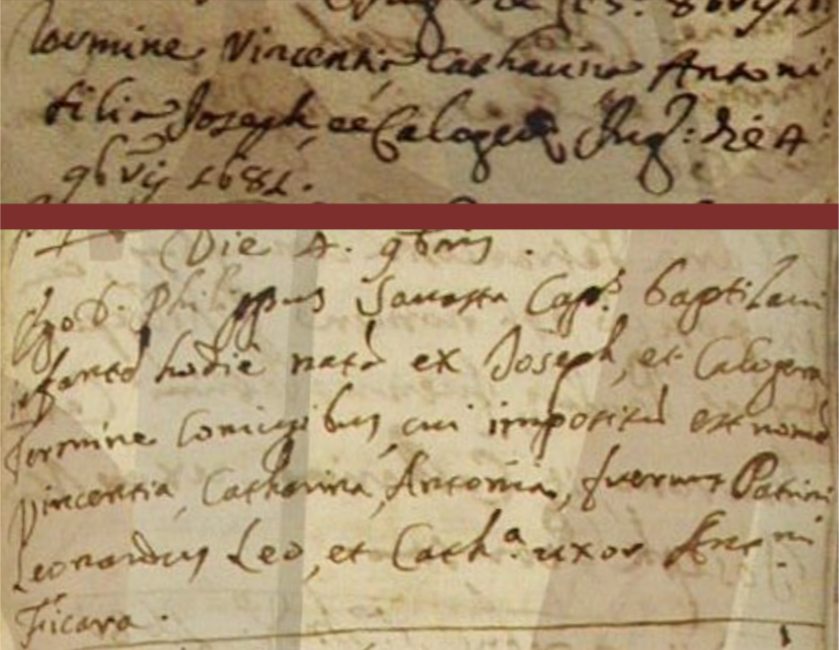 Termine Vincentia Catharina Antoni
filia Joseph et Calogera Jug: die 4
9bris 1681.
Die 4. 9bris.
Ego D. Philippus Capp.s baptizavi
infantē hodie natā ex Joseph, et Calogera
Termine coniugibus, cui impositū est nomē
Vincentia, Catharina, Antonia, fuerunt Patrini
Leonardus Leo, et Cath.a uxor
Ficara.